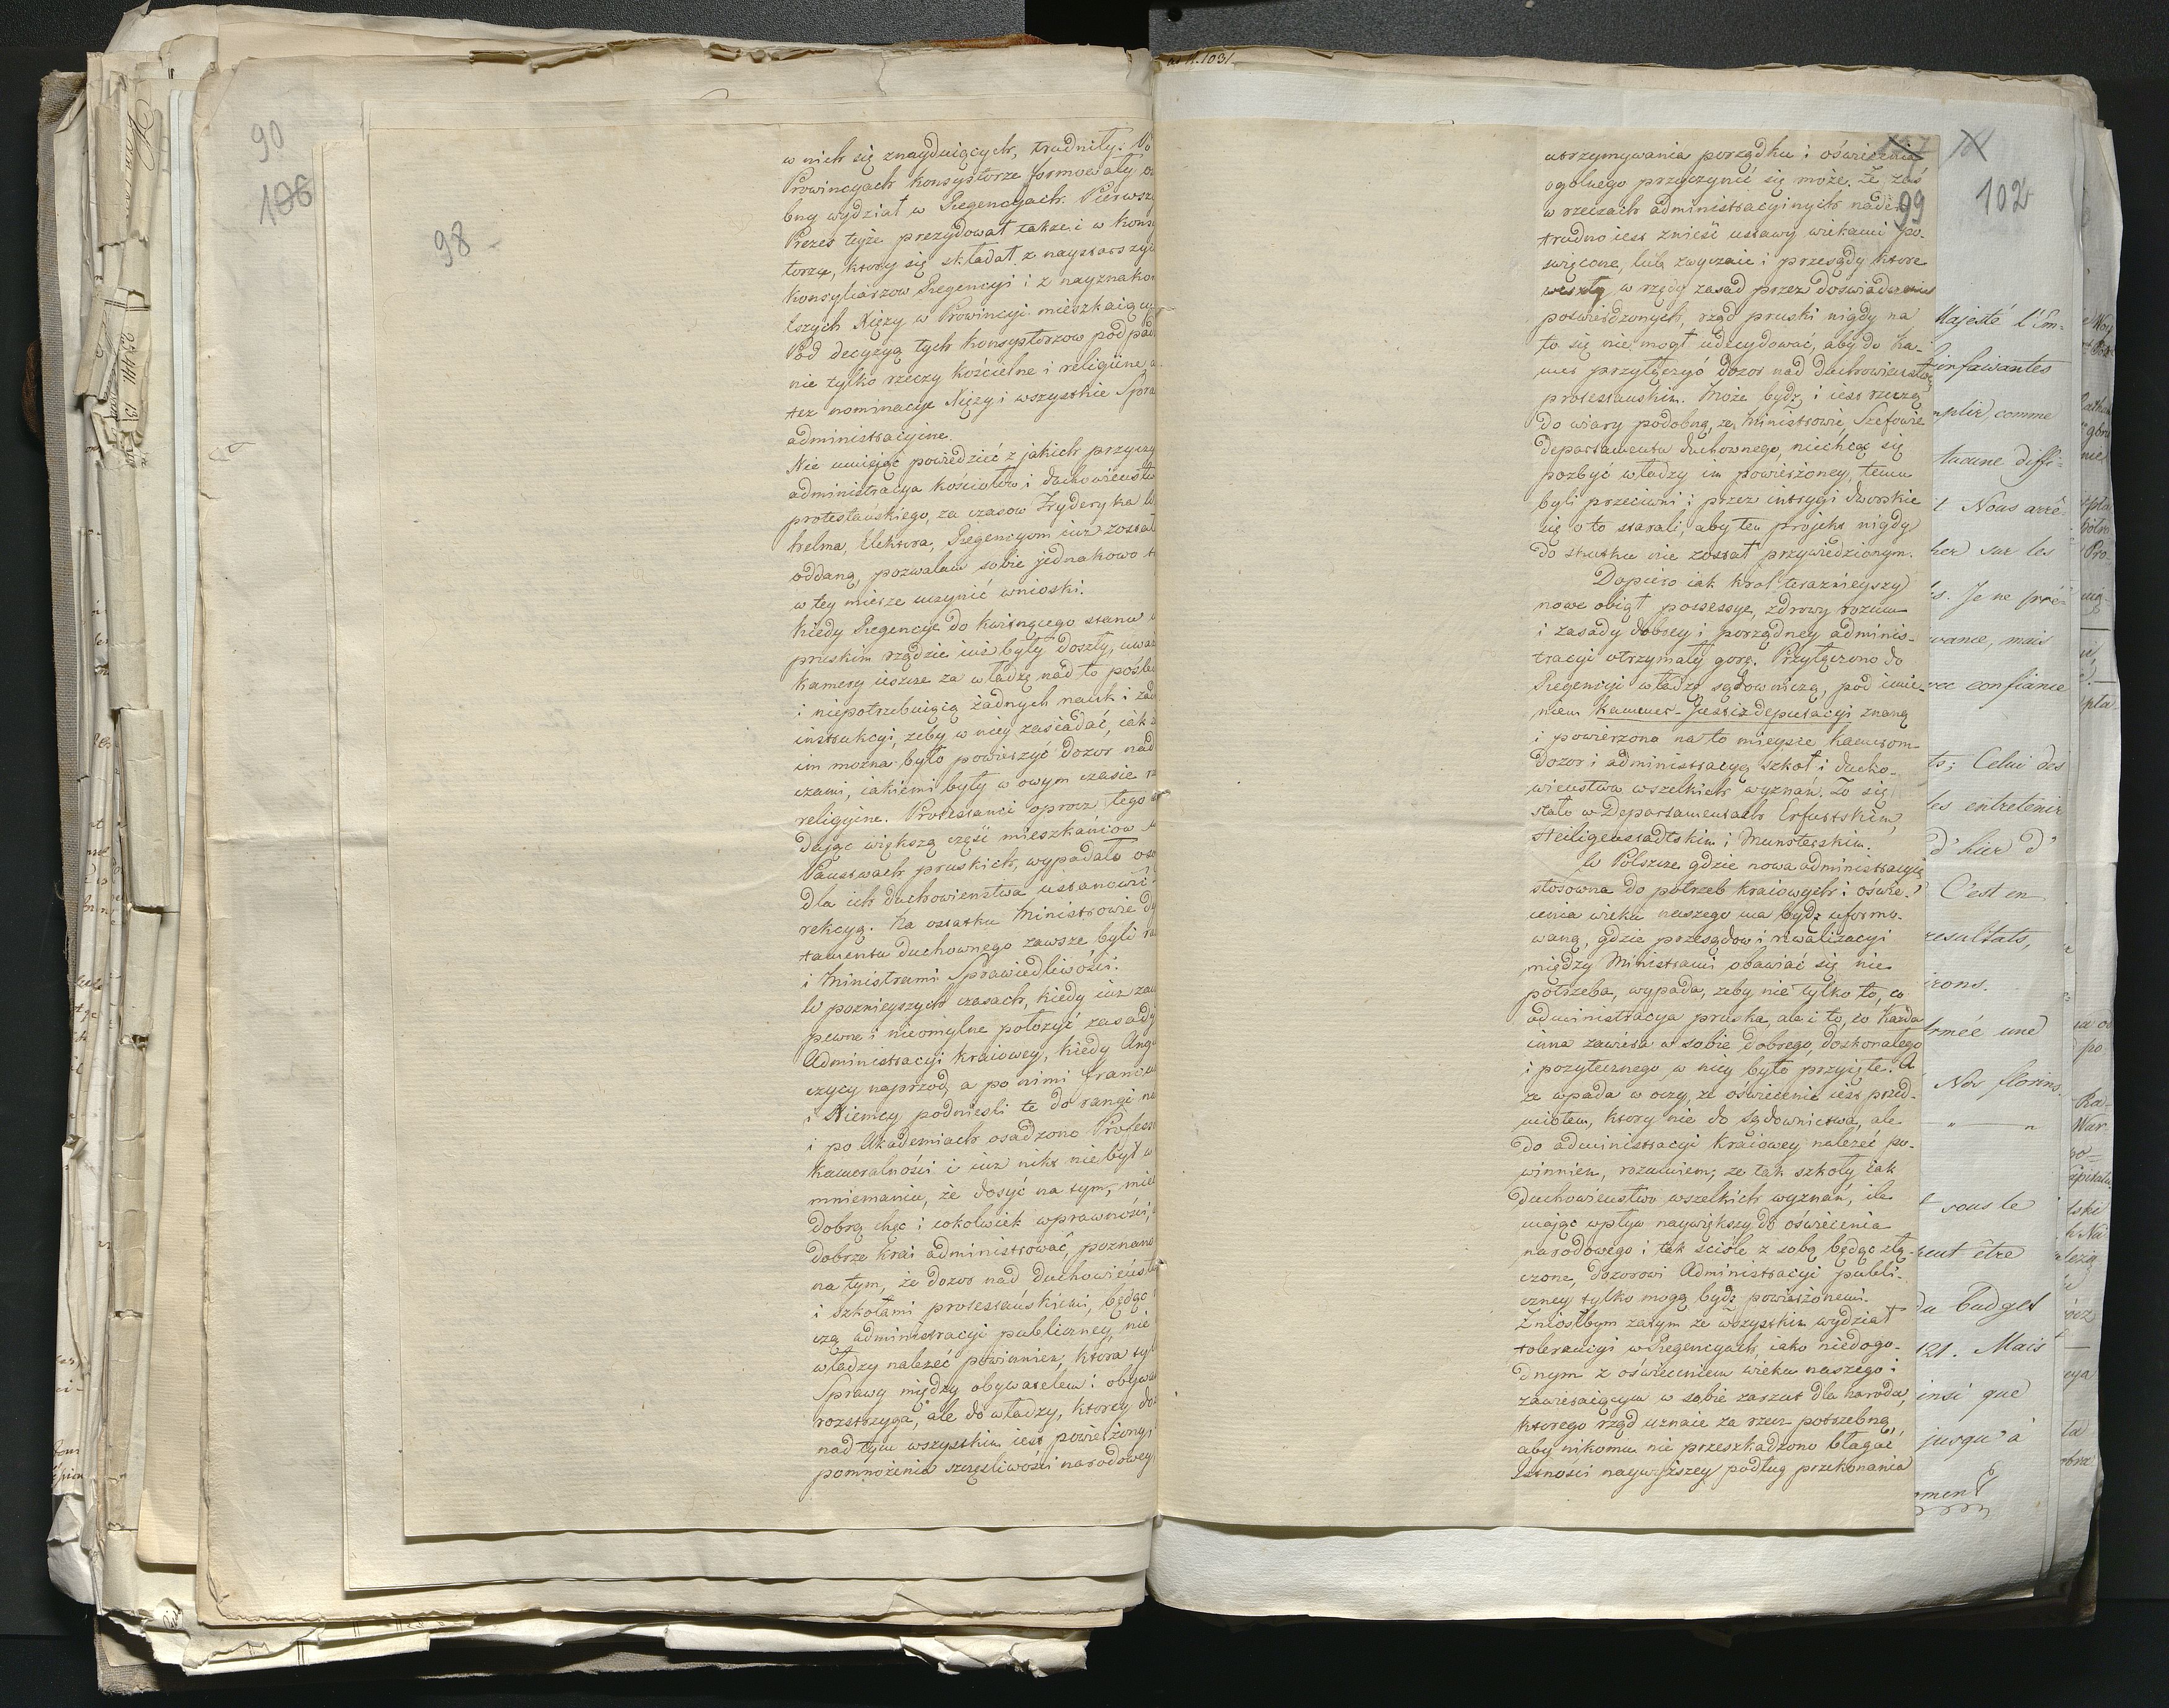 90
106
98
w nich się znayduiących, trudniły.
Prowincyach konsystorze formowały
bny wydział w Regencyach. Pierwszy
Prezes teyże prezydował także i w Konsy
torze, ktory się składał z naystarszych
Konsyliarzow Regencyi i z nayznako
tszych Xięzy w Prowincyi mieszkaiący
Pod decyzyą tych konsystorzow podpad
nie tylko rzeczy kościelne i religiine a
też nominacye Xięzy i wszystkie Spra
administracyine.
Nie umieiąc powiedzieć z jakich przyczy
administracya kosciołow i duchowieństw
protestańskiego, za czasow Fryderyka W
helma, Elektora, Regencyom iuż został
oddaną, pozwalam sobie jednakowo
w tey mierze uczynić wnioski.
Kiedy Regencye do kwitnącego stanu
pruskim rządzie iuż były doszły, uważ
Kamery ieszcze za władzę nad to pośle
i niepotrzebuiącą żadnych nauk i żad
instrukcyi, żeby w niey zasiadać, iak
im można było powierzyć dozor nad
czami, iakiemi były w owym czasie rz
religijne. Protestanci oprocz tego
dając większą część mieszkańcow
Państwach pruskich, wypadało oso
dla ich duchowieństwa ustanowić
rekcyą. Na ostatku Ministrowie De
tamentu duchownego zawsze byli ra
i Ministrami Sprawiedliwości.
W poznieyszych czasach, kiedy iuż za
pewne i nieomylne położyć zasady
Administracyi kraiowey, kiedy Ang
czycy naprzod, a po nimi francu
i Niemcy podniesli te do rangi na
i po Akademiach osadzono Profess
Kameralności i iuż nikt nie był w
mniemaniu, że dosyć na tym, mie
dobrą chęć i cokolwiek wprawności,
dobrze kray administrować, poznano
na tym, że dozor nad Duchowieńst
i szkołami protestańskiemi, będąc
czą administracyi publiczney, nie
władzy należeć powinien, ktora tyl
Sprawy między obywatelem i obywa
rozstrzyga, ale do władzy, ktorey do
nad tym wszystkim iest powierzony
pomnożenia szczęśliwości narodowey
99
102
utrzymywania porządku i oświecenia
ogolnego przyczynić się może. Że zaś
w rzeczach administracyinych nader
trudno iest znieść ustawy wiekami po-
swięcone, lub zwyczaie i przesądy ktore
weszły w rzędy zasad przez doswiadczenie
potwierdzonych, rząd pruski nigdy na
to się nie mogł udecydować, aby do ka-
mer przyłączyć dozor nad duchowieństwem
protestanskim. Może bydz i iest rzeczą
do wiary podobną, że Ministrowie, Szefowie
Departamentu duchownego, niechcąc się
pozbyć władzy im powierżoney, temu
byli przeciwni i przez intrygi dworskie
się o to starali, aby ten projekt nigdy
do skutku nie został przywiedzionym.
Dopiero iak krol teraznieyszy
nowe obiął possessye, zdrowy rozum
i zasady dobrey i porządney adminis-
tracyi otrzymały gorę. Przyłączono do
Regencyi władzę sądowniczą, pod imie-
niem Kammer-Justizdeputacyi znaną
i powierzono na to mieysce kamerom
dozor i administracyą szkoł i ducho-
wieństwa wszelkich wyznań. To się
stało w Departamentach Erfurtskim,
Heiligenstadtskim i Munsterskim.
W Polszcze, gdzie nowa administracyia
stosowna do potrzeb kraiowych i oświe-
cenia wieku naszego ma bydz uformo-
waną, gdzie przesądow i rywalizacyi
między Ministrami obawiać się nie
potrzeba, wypada, żeby nie tylko to, co
administracya pruska, ale i to, co każda
inna zawiera w sobie dobrego, doskonałego
i pożytecznego w niey było przyięte. A
że wpada w oczy, że oświecenie iest przed-
miotem, ktory nie do sądownictwa, ale
do administracyi kraiowey należeć po-
winnien, rozumiem, że tak szkoły iak
duchowieństwo wszelkich wyznań, ile
maiąc wpływ naywiększy do oświecenia
narodowego i tak ściśle z sobą będąc złą-
czone, dozorowi Administracyi publi-
czney tylko mogą bydz powierżonemi.
Zniosłbym zatym ze wszystkim wydział
tolerancyi w Regencyach, iako niedogo-
dnym z oświeceniem wieku naszego i
zawieraiącym w sobie zarzut dla Narodu,
ktorego rząd uznaie za rzecz potrzebną,
aby nikomu nie przeszkadzono błagać
istności naywyższey podług przekonania
Majesté l'Em-
infaisantes
mplir, comme
Aucune diffi-
Nous arrê-
her sur les
Je ne pré-
vance, mais
vec confiance
ts; Celui des
les entretenir
d'hier d'
C'est en
resultats,
irons.
Armée une
Nos florins
sous le
peut être
du Budget
121. Mais
insi que
jusqu'à
oment